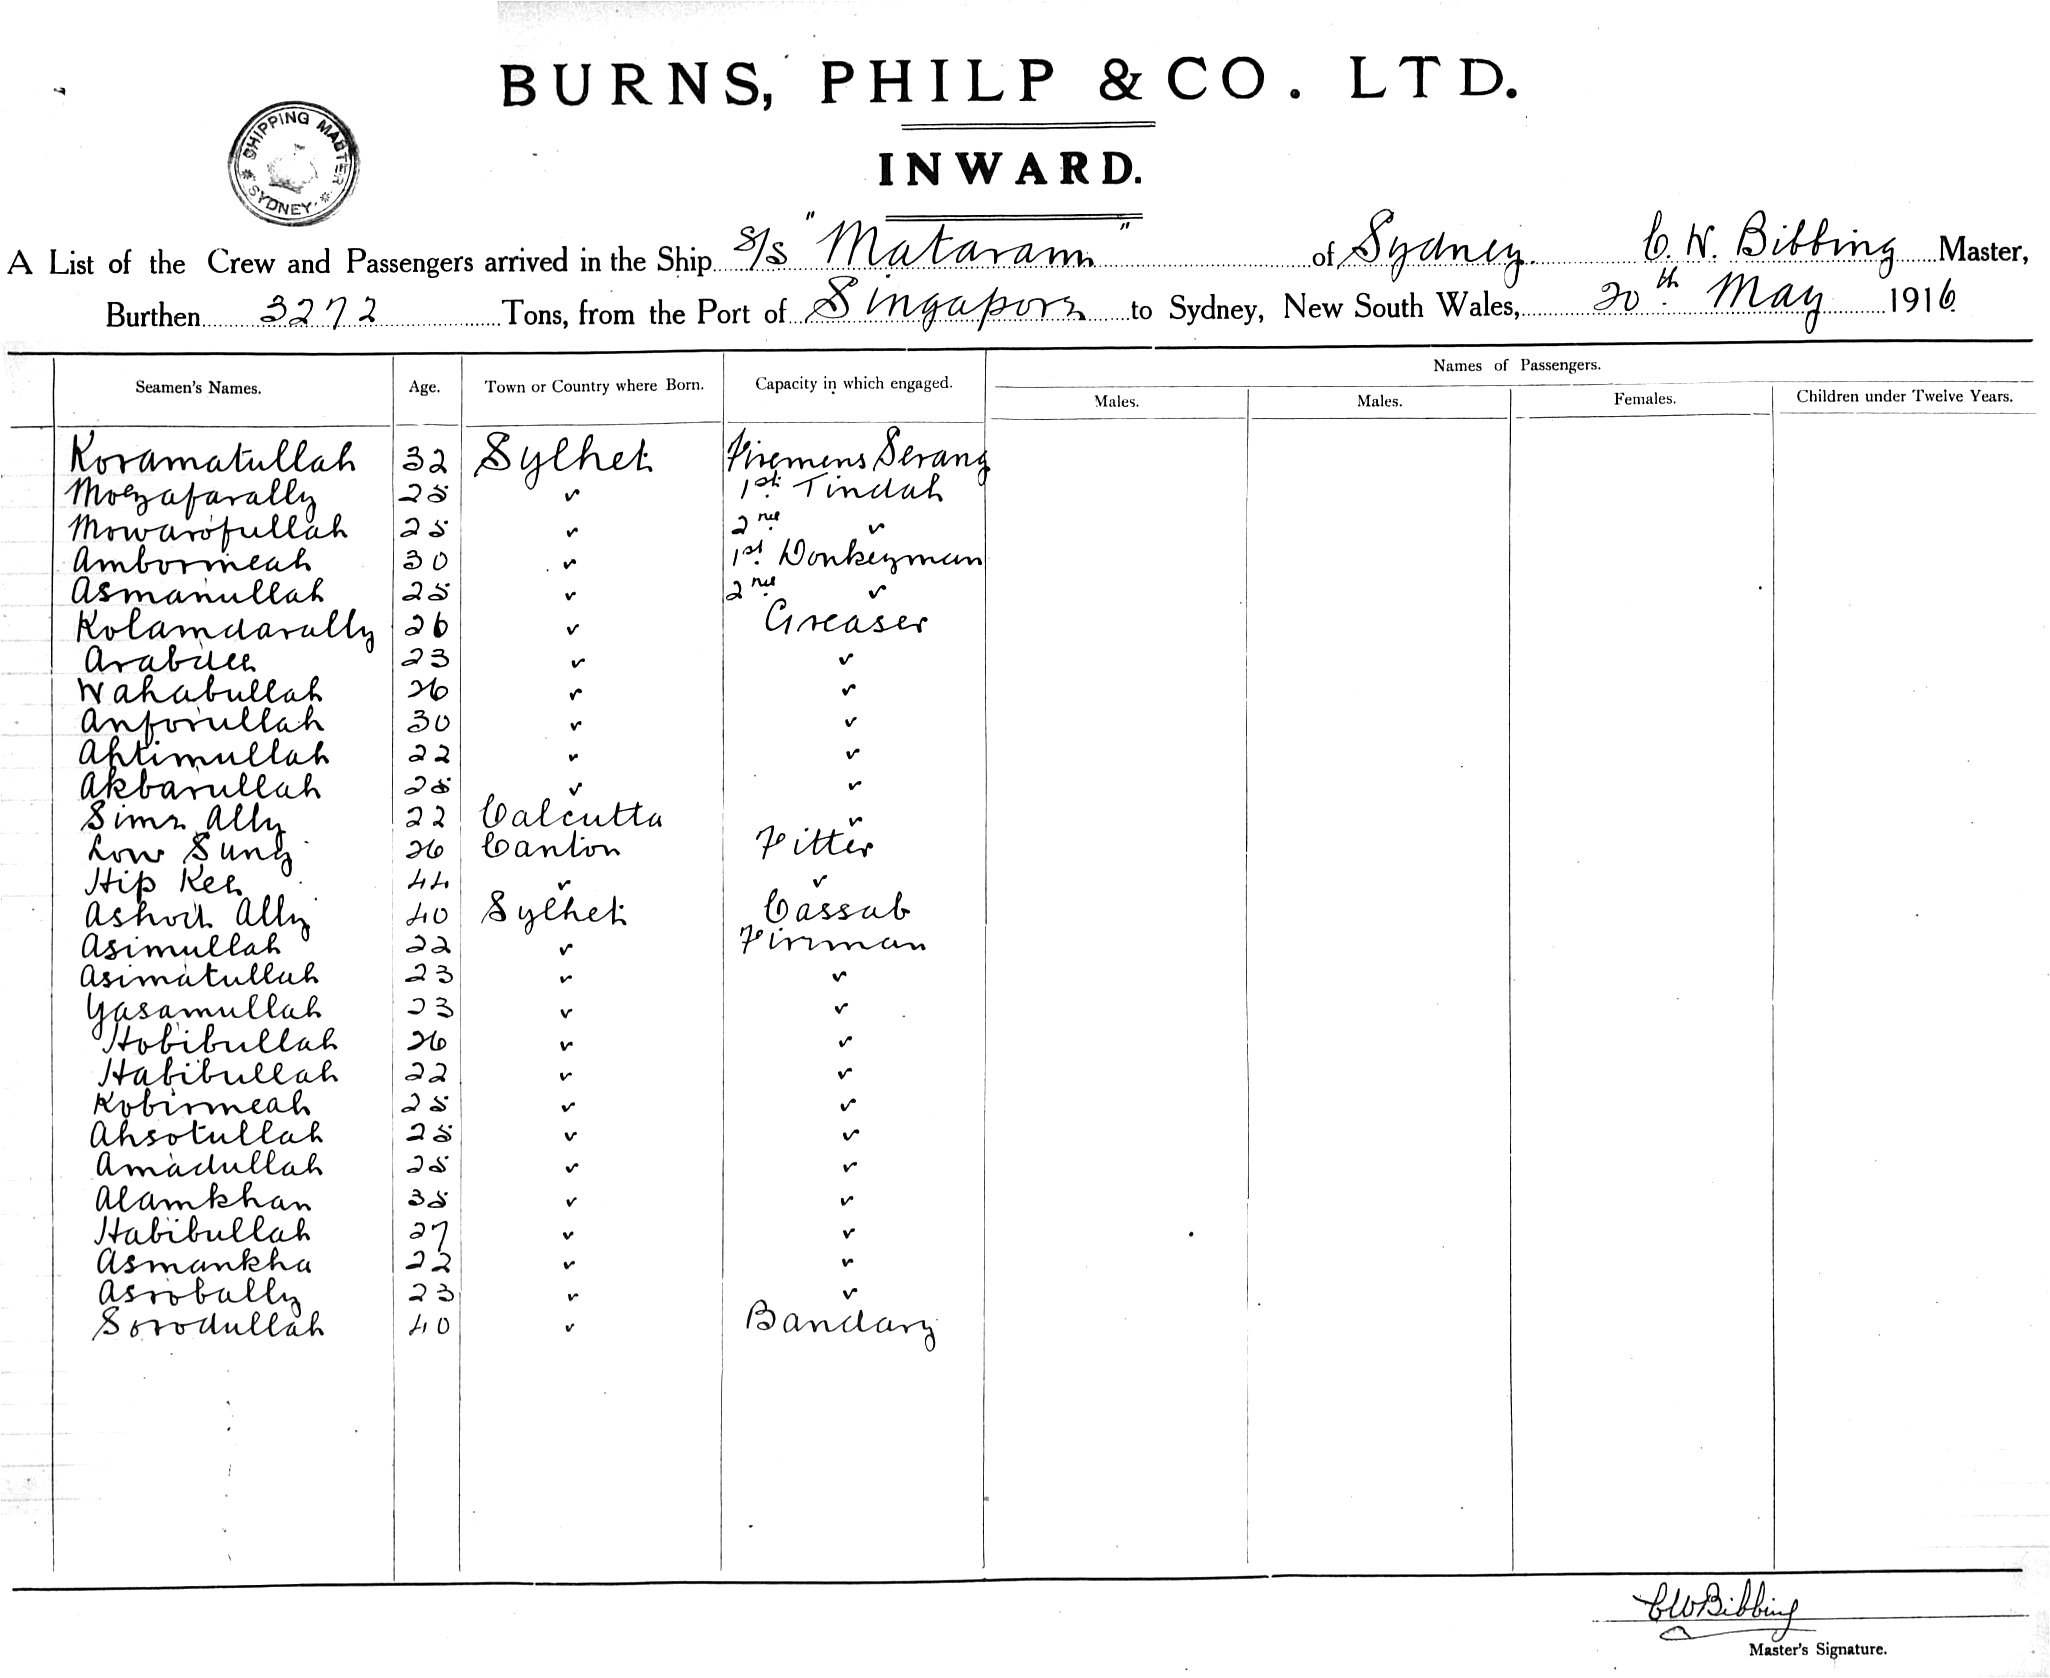 BURNS, PHILP & CO. LTD.
SHIPPING MASTER SYDNEY.
INWARD.
A List of the Crew and Passengers arrived in the Ship S/S "Mataram" of Sydney C. W. Bibbing Master,
Burthen 3272 Tons, from the Port of Singapore to Sydney, New South Wales, 20th May 1916
Names of Passengers.
Seamen's Names. Age. Town or Country where Born. Capacity in which engaged. Males. Males. Females. Children under Twelve Years.
Koramatullah 32 Sylhet Firemens Serang
Mozafarally 25 " 1st Tindah
Mowarofullah 25 " 2nd "
Ambormeah 30 " 1st Donkeyman
Asmanullah 25 " 2nd "
Kolamdarally 26 " Greaser
Arabdee 23 " "
Wahabullah 26 " "
Anforullah 30 " "
Ahtimullah 22 " "
Akbarullah 25 " "
Sime Ally 22 Calcutta "
Low Sung 26 Canton Fitter
Hip Kee 44 " "
Ally 40 Sylhet Cassab
Asimullah 22 " Fireman
Asimatullah 23 " "
Yasamullah 23 " "
Hobibullah 26 " "
Habibullah 22 " "
Kobirmeah 25 " "
Ahsotullah 25 " "
Amadullah 25 " "
Alamkhan 35 " "
Habibullah 27 " "
Asmankha 22 " "
Asrobally 23 " "
Sorodullah 40 " Bandary
CWBibbing
Master's Signature.